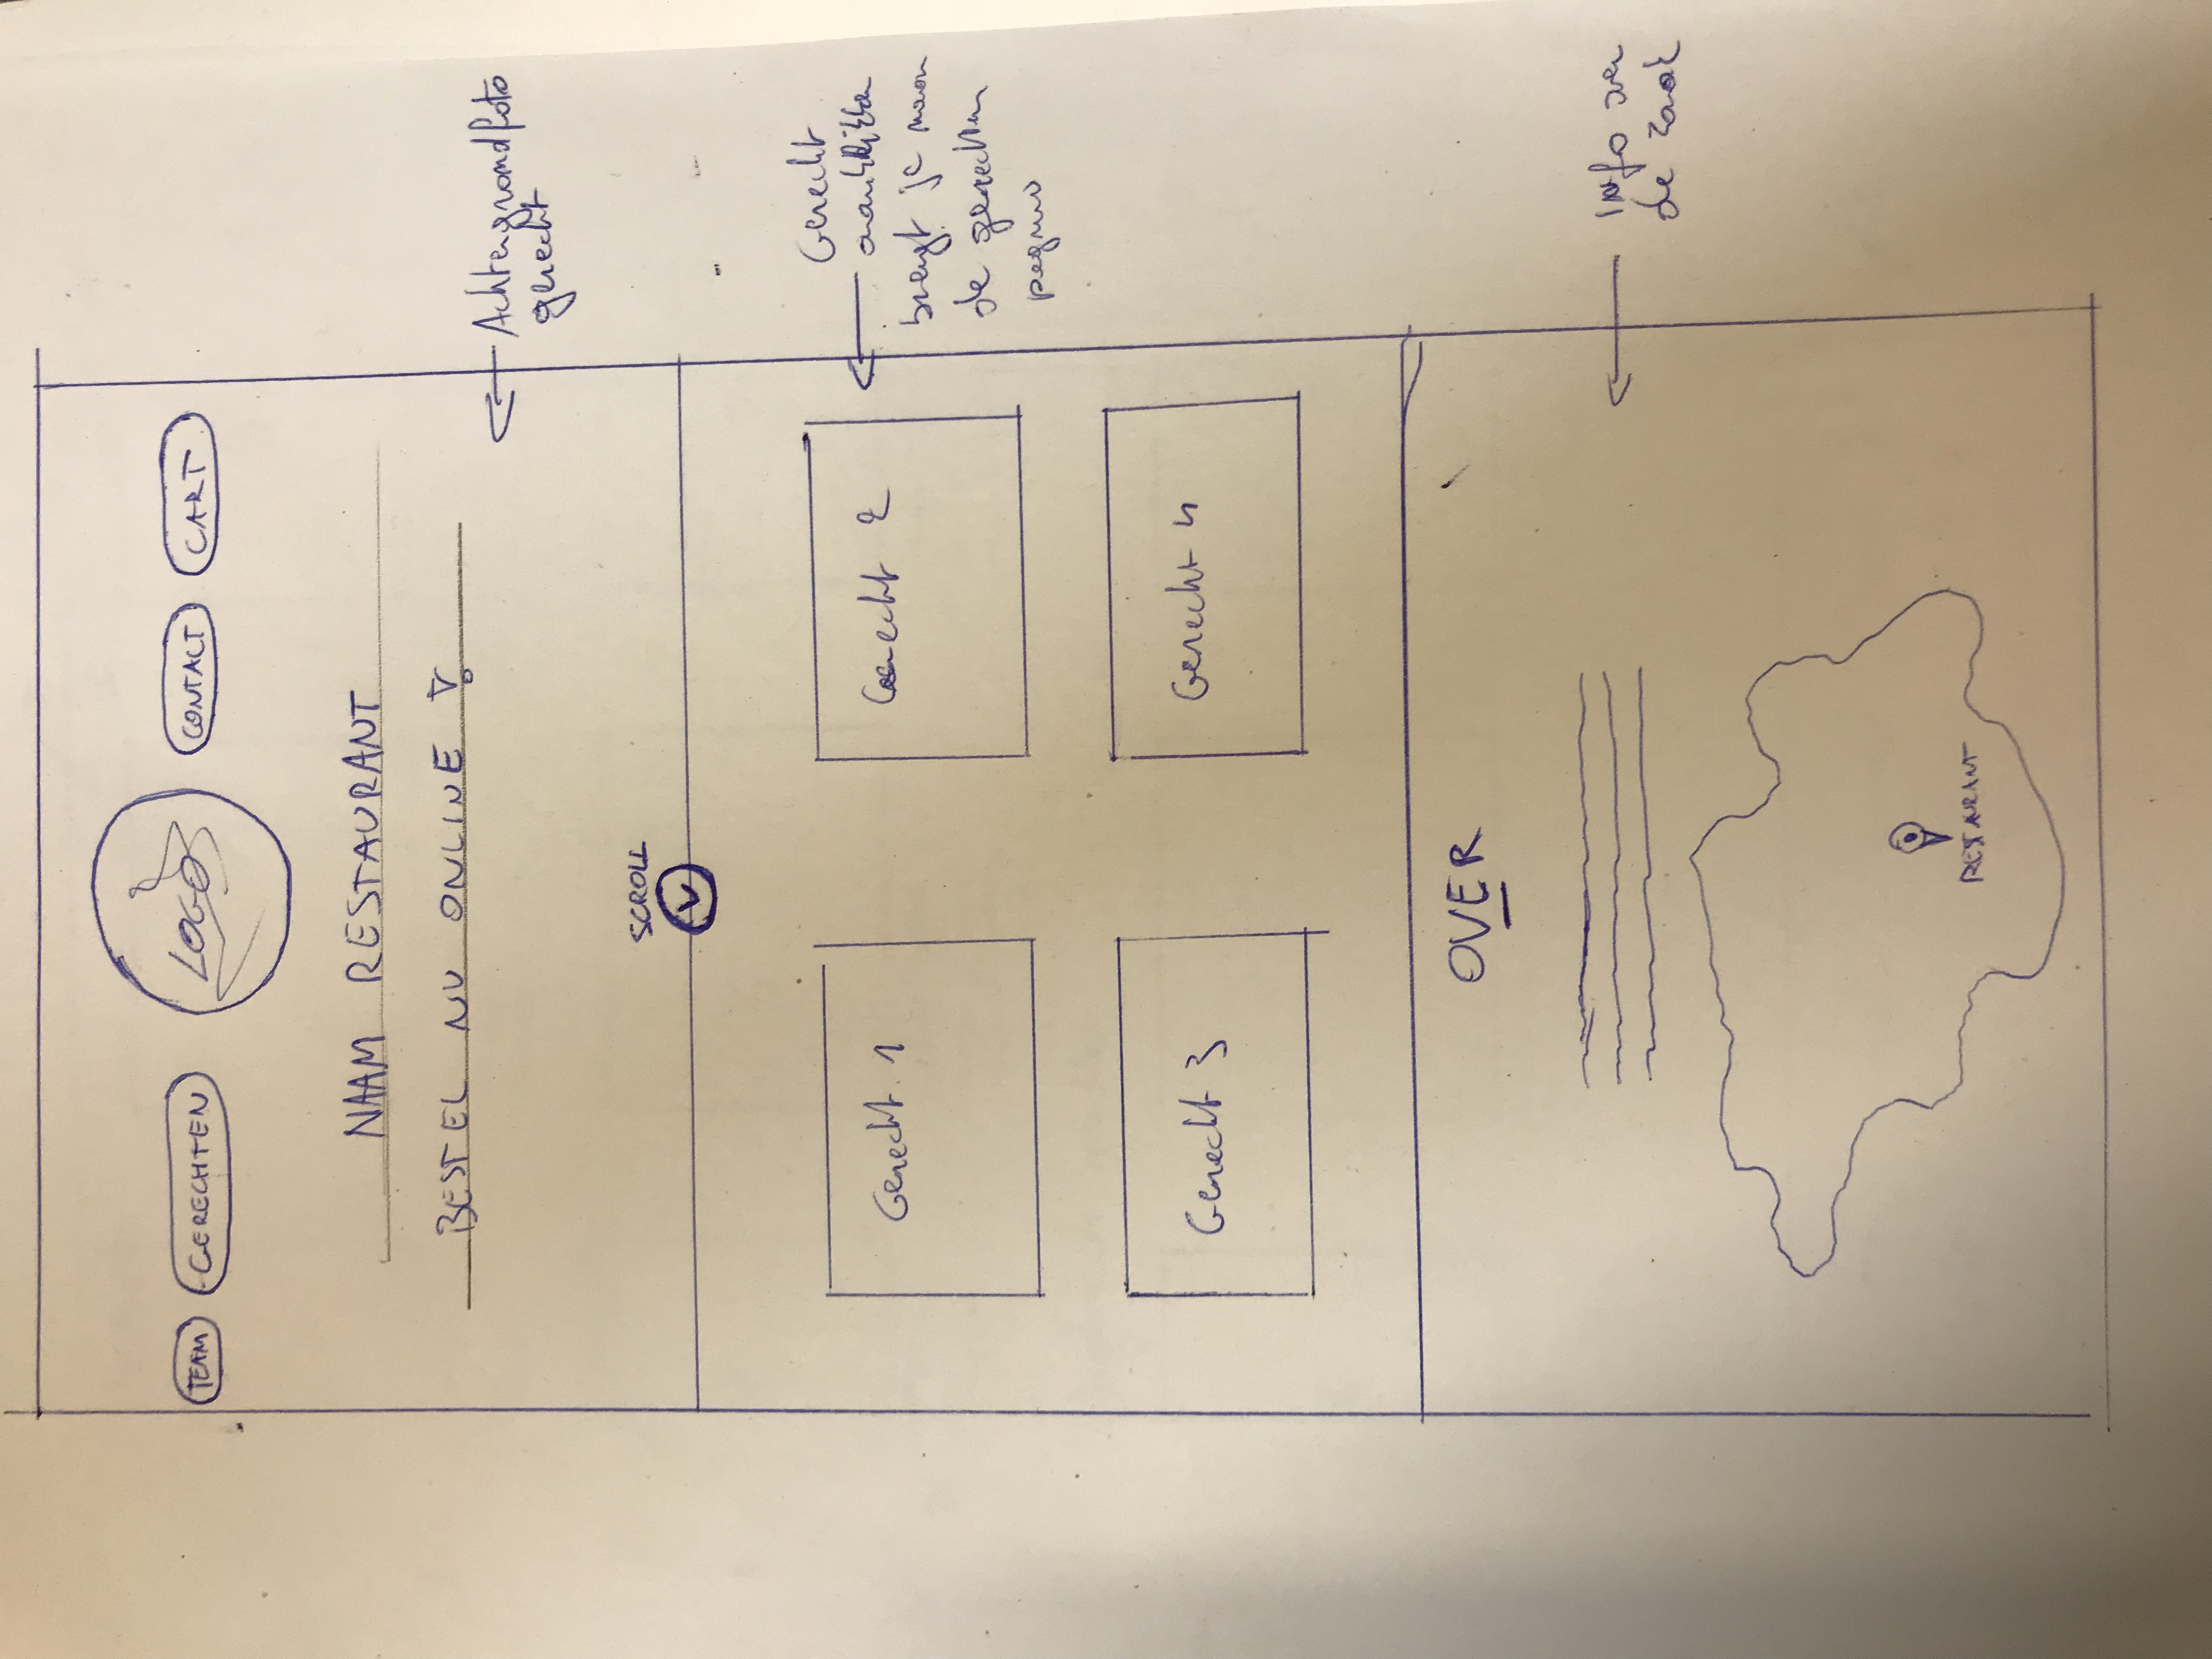 TEAM
GERECHTEN
LOGO
CONTACT
CART
NAAM RESTAURANT
BESTEL NU ONLINE !
Achtergrondfoto
gerecht
SCROLL
Gerecht 1
Gerecht 2
Gerecht
aanklikken
brengt je naar
de gerechten
pagina
Gerecht 3
Gerecht 4
OVER
Info over
de zaak
RESTAURANT